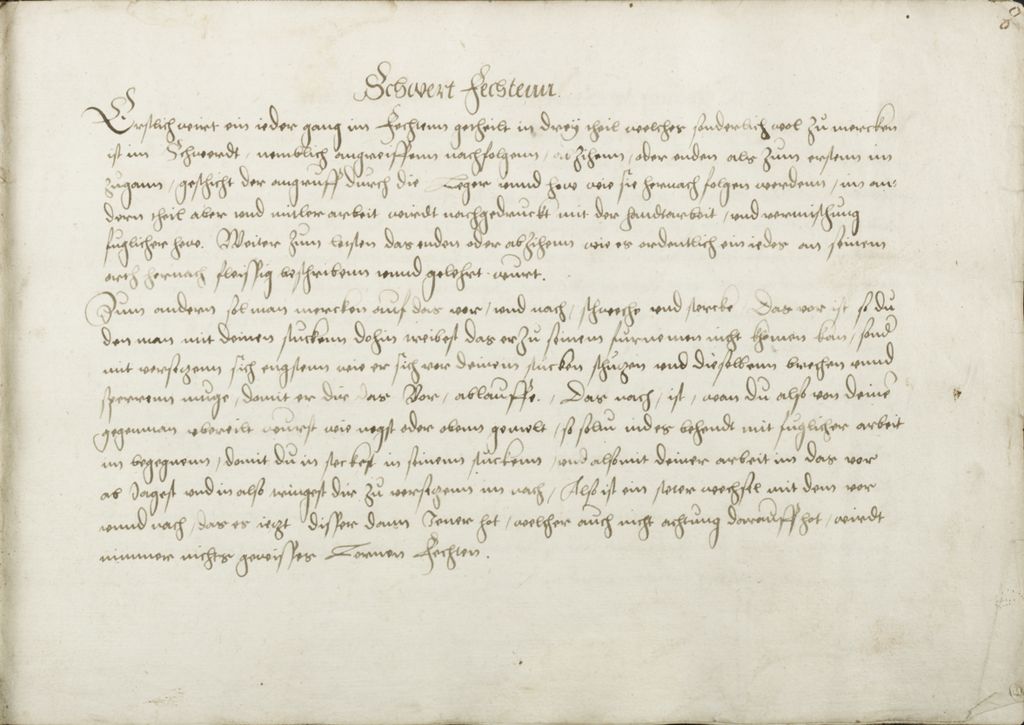 Schwert Fechtenn.
Erstlich wirt ein ieder gang im Fechtenn getheilt in drey theil welches sonderlich wol zu mercken
ist im Schwerdt, nemblich angreiffenn nachfolgenn, abzihenn, oder enden als zum erstenn im
zugann, geschicht der angruff durch die Leger vnnd hew wie sie hernach folgen werdenn, im an-
dern theil aber vnd mitler arbeit wirdt nachgedruckt mit der handtarbeit, vnd vermischung
fuglicher hew. Weiter zum letsten das enden oder abzihenn wie es ordentlich ein iedes an seinem
orth hernach fleissig beschribenn vnnd gelehrt wurt.
Zum andern sol man mercken auf das vor, vnd nach, schweche vnd stercke, Das vor ist so du
den man mit deinen stuckenn dohin treibest das er zu seinem furnemen nicht khomen kan, sonder
mit versetzenn sich engstenn wie er sich vor deinem stucken schutzen vnd dieselbenn brechen vnnd
sperrenn muge, domit er dir das Vor, ablauffe. Das nach, ist, wan du also von deinem
gegenman vbereilt wurst wie negst oder obenn gemelt, so soltu indes behendt mit fuglicher arbeit
im begegnenn, domit du in steckest in seinenn stuckenn, vnd also mit deiner arbeit im das vor
ab Jagest vnd in also tringest dir zu versetzenn im nach, Also ist ein steter wechsel mit dem vor
vnnd nach, das es ietzt disser dann Jener hat, welcher auch nicht achtung darauff hat, wirdt
nimmer nichts gewisses Lernen Fechten.